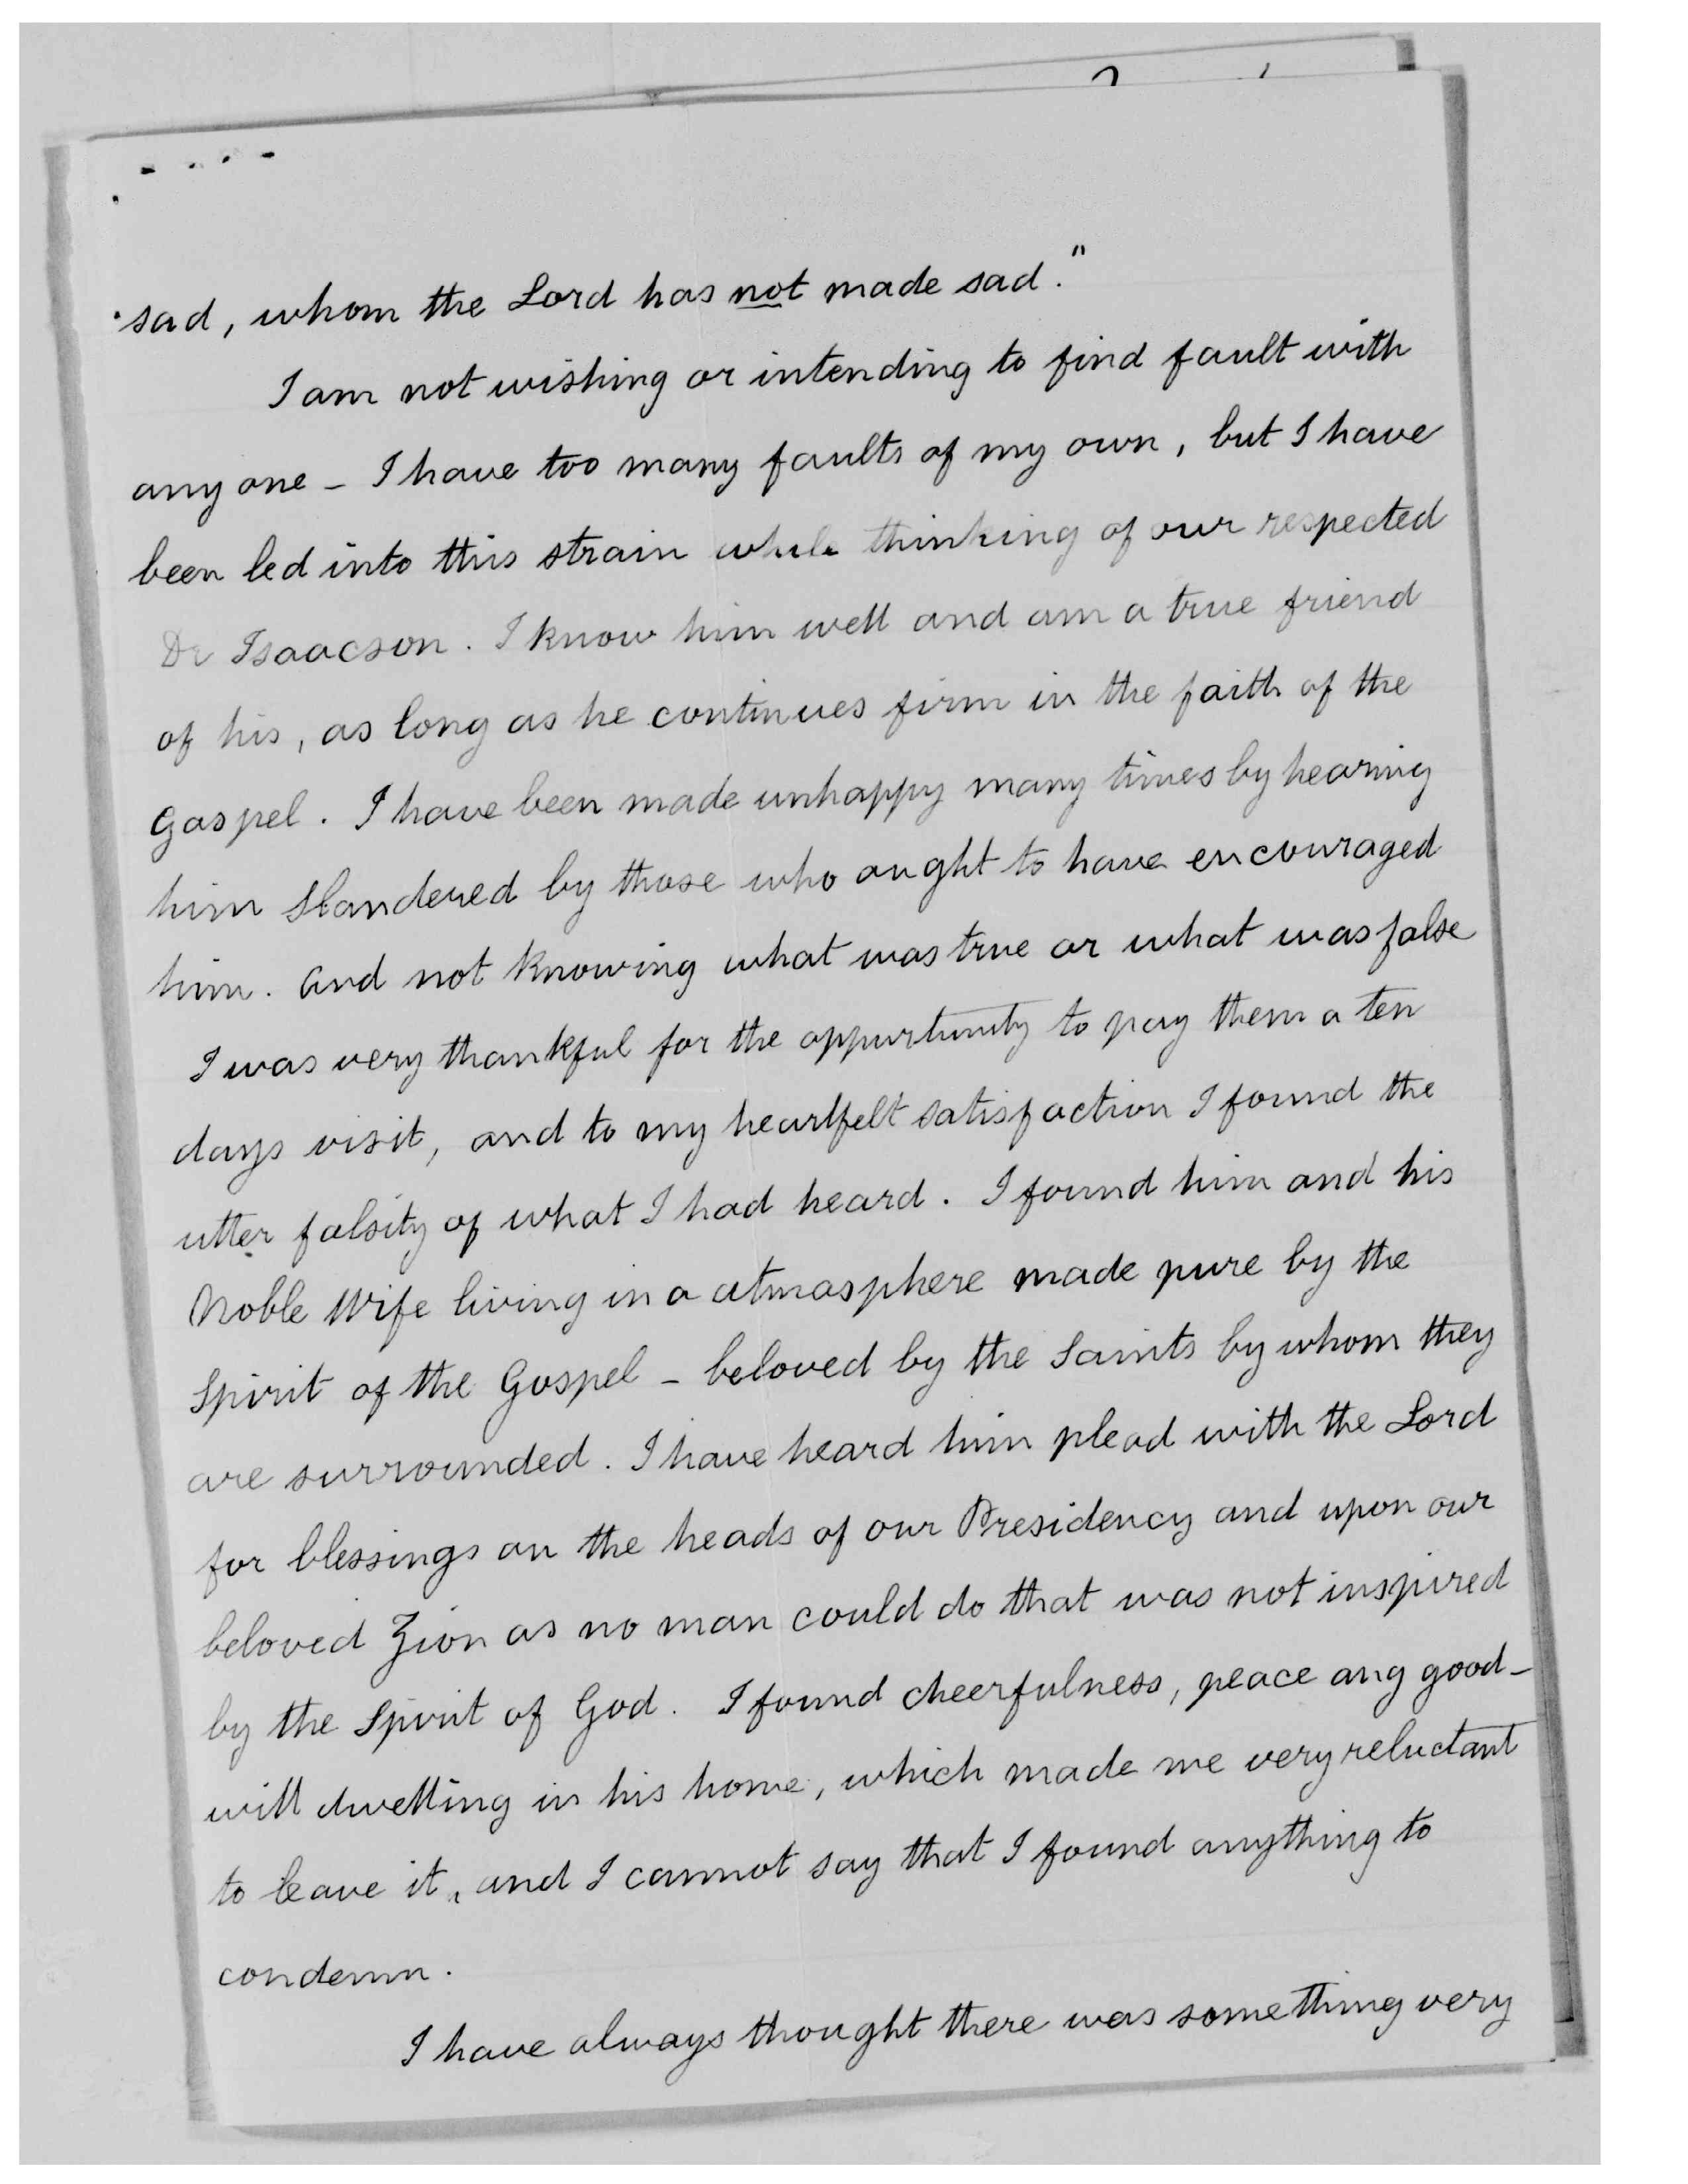 sad, whom the Lord has not made sad."
I am not wishing or intending to find fault with
any one - I have too many faults of my own, but I have
been led into this strain while thinking of our respected
Dr Isaacson. I know him well and am a true friend
of his, as long as he continues firm in the faith of the
Gospel. I have been made unhappy many times by hearing
him slandered by those who ought to have encouraged
him. And not knowing what was true or what was false
I was very thankful for the oppurtunity to pay them a ten
days visit, and to my heartfelt satisfaction I found the
utter falsity of what I had heard. I found him and his
Noble Wife living in a atmosphere made pure by the
Spirit of the Gospel - beloved by the Saints by whom they
are surrounded. I have heard him plead with the Lord
for blessings on the heads of our Presidency and upon our
beloved Zion as no man could do that was not inspired
by the Spirit of God. I found cheerfulness, peace ang good-
will dwelling in his home, which made me very reluctant
to leave it, and I cannot say that I found anything to
condemn.
I have always thought there was something very